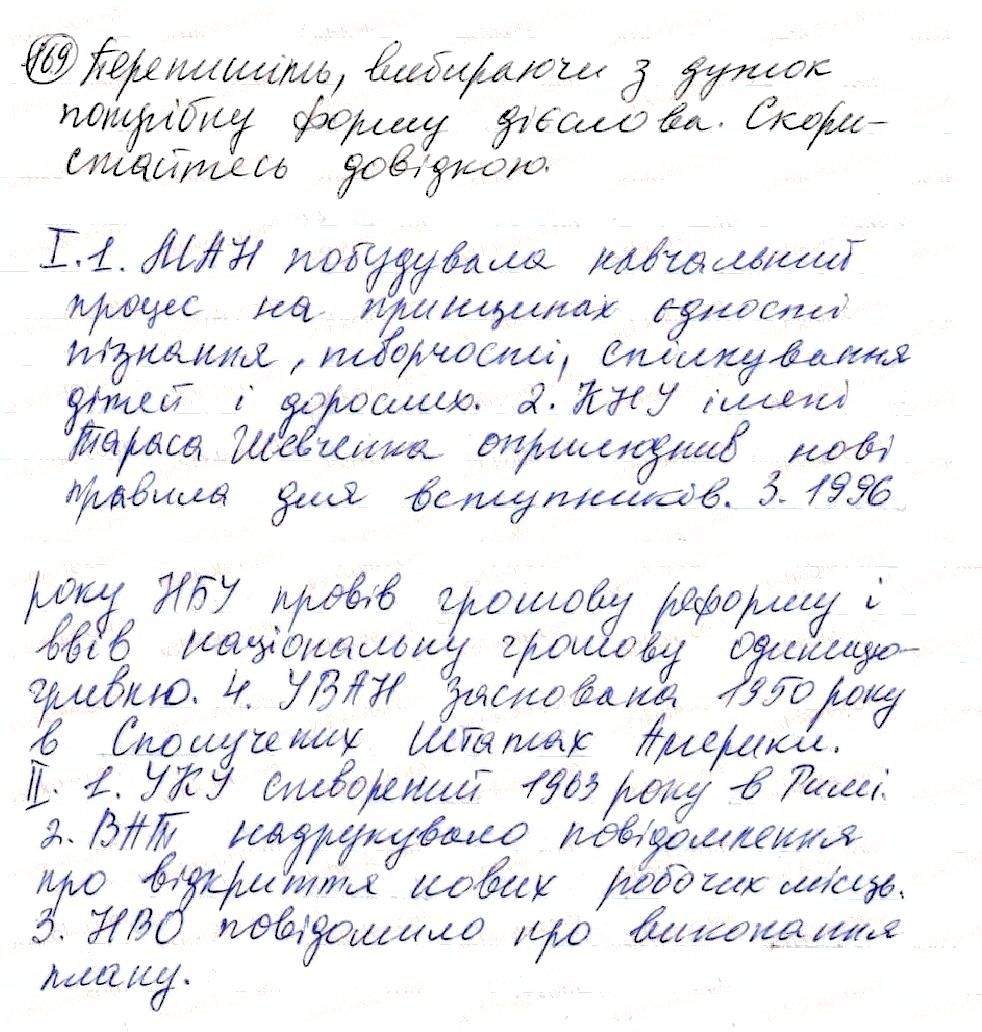 169 Перепишіть, вибираючи з дужок
потрібну форму дієслова. Скори-
стайтесь довідкою.
I. 1. МАН побудувала навчальний
процес на принципах єдності
пізнання, творчості, спілкування
дітей і дорослих. 2. КНУ імені
Тараса Шевченка оприлюднив нові
правила для вступників. 3. 1996
року НБУ провів грошову реформу і
ввів національну грошову одиницю-
гривню. 4. УВАН заснована 1950 року
в Сполучених Штатах Америки.
II. 1. УКУ створений 1963 року в Римі.
2. ВАТ надрукувало повідомлення
про відкриття нових робочих місць.
3. НВО повідомило про виконання
плану.